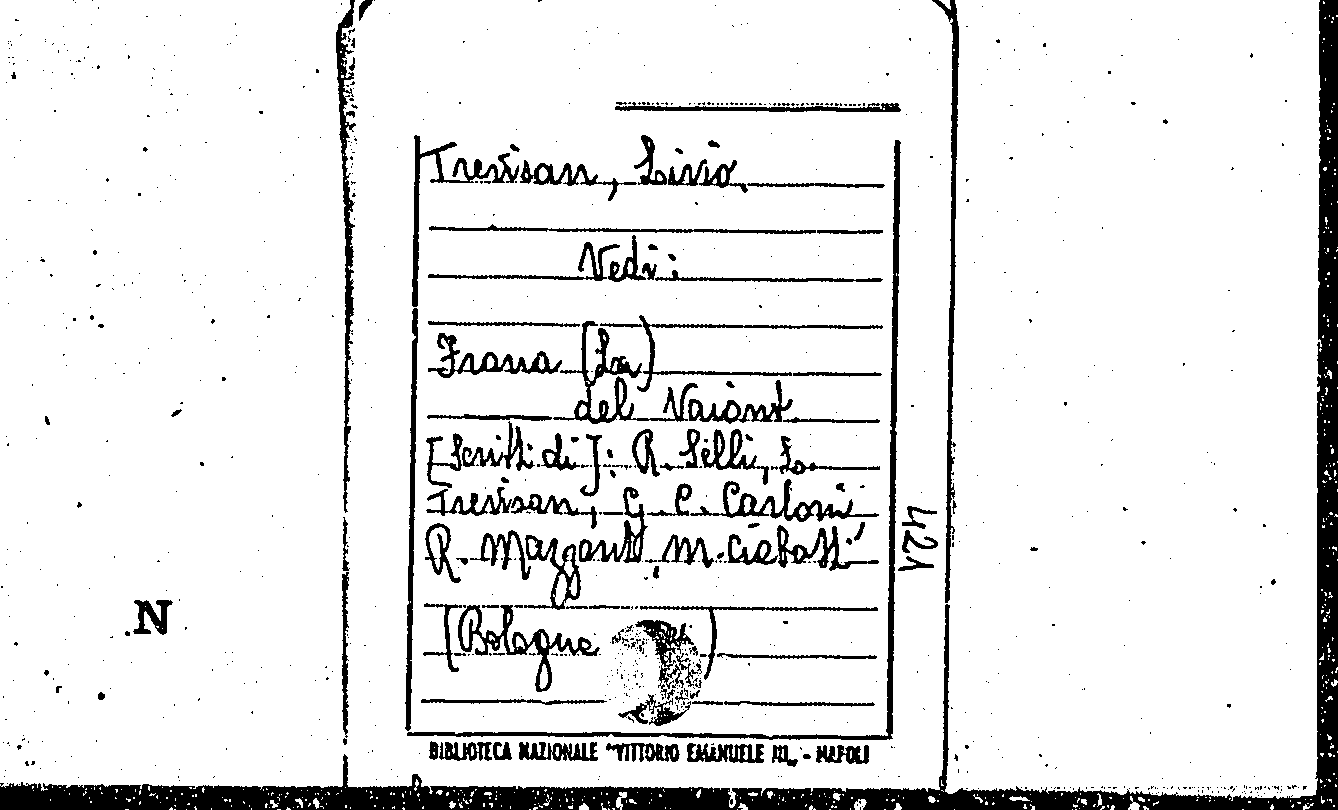 Trevisan, Livio.
Vedi:
Frana (La)
del Vaiont.
[Scritti di]: R. Selli, L.
Trevisan, G. C. Carloni,
R. Mazzanti, M. Ciabatti
(Bologna )
421
N
BIBLIOTECA NAZIONALE "VITTORIO EMANUELE III" - NAPOLI